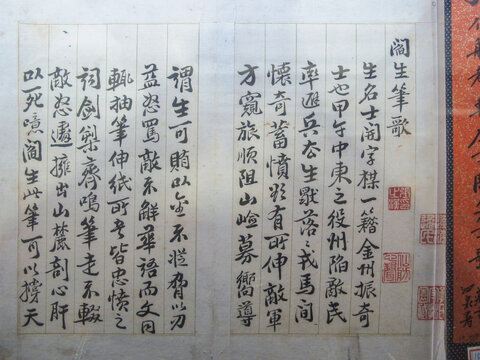 閻生筆歌
生名士開字楳一籍金州振奇
士也甲午中東之役州陷敵民
率避兵去生獨落々戎馬間
懷奇蓄憤欲有所伸敵軍
方窺旅順阻山嶮募嚮導
謂生可賄以金不從脅以刃
益怒罵敵不解華語而文同
輒抽筆伸紙所書皆忠憤之
詞劍槊齊鳴筆走不輟
敵怒遂擁出山麓剖心肝
以死噫閻生此筆可以撐天